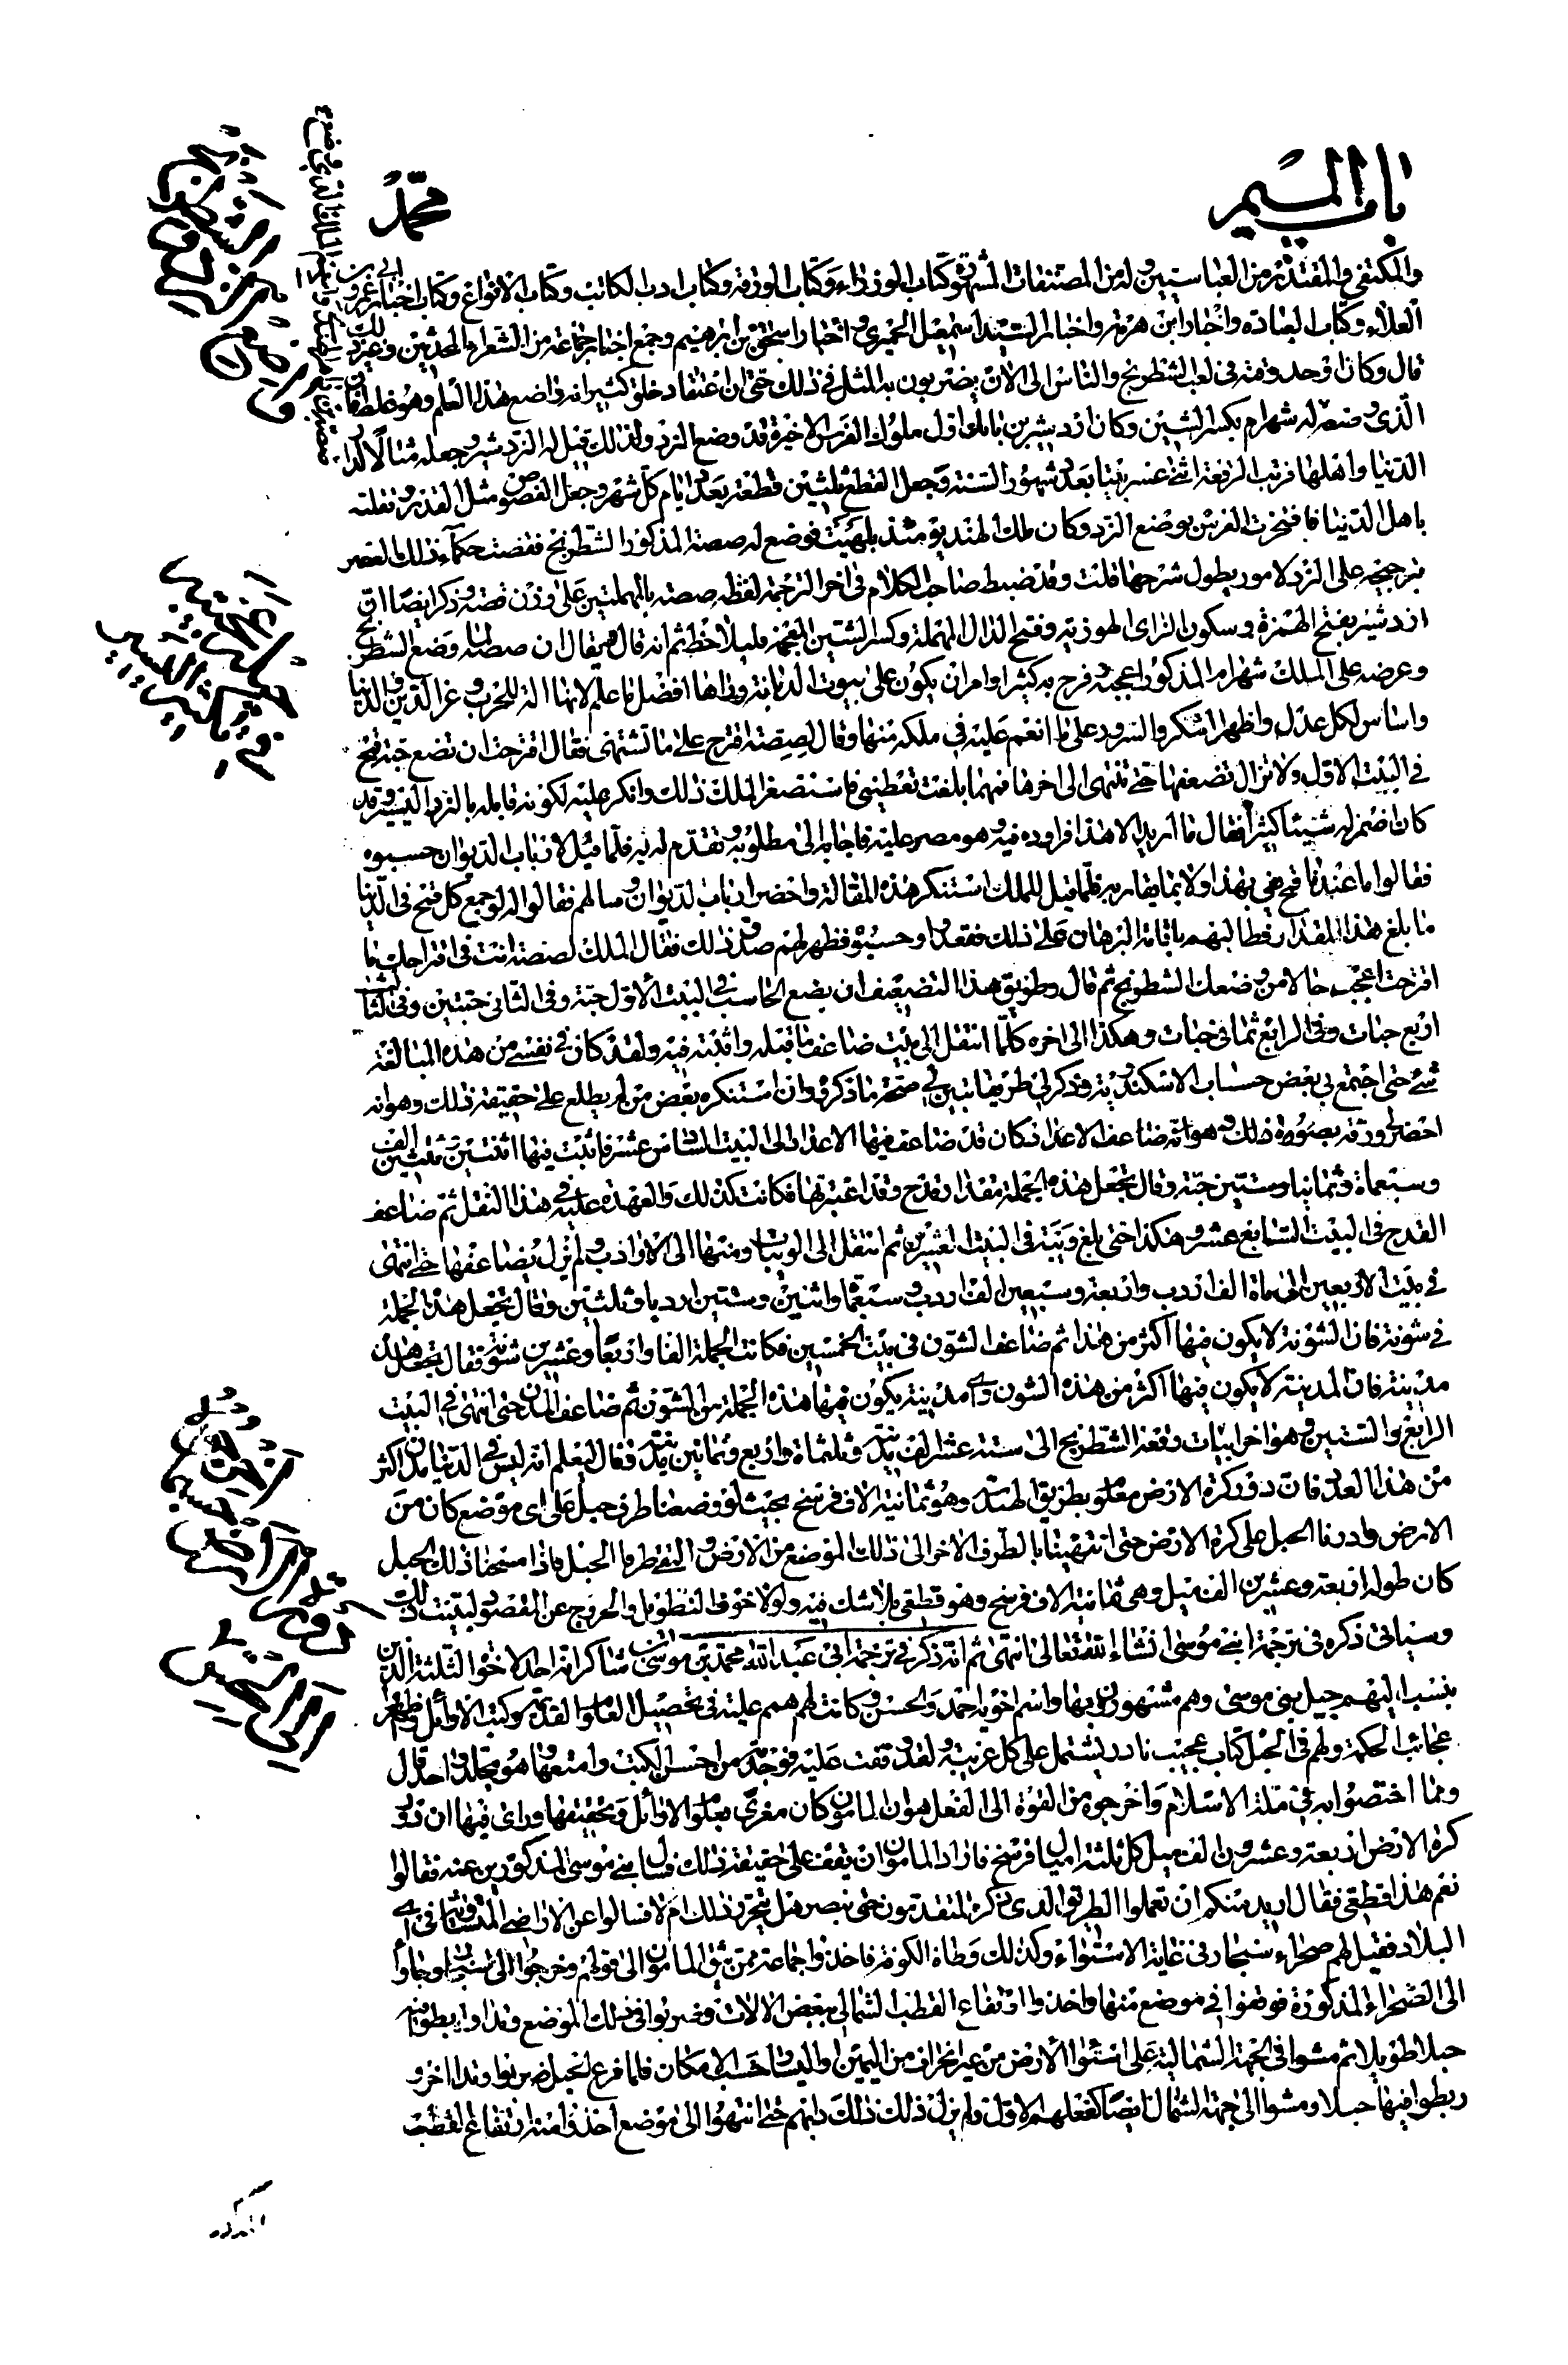 باب الميم
محمد
والمكتفي والمقتدر من العباسيين وله من المصنفات المشهورة كتاب الوزراء وكتاب الورقة وكتاب ادب الكاتب وكتاب الانواع وكتاب اخبار ابي عمرو بن
العلاء وكتاب العبادة واخبار ابن هرمة واخبار السيد اسمعيل الحميري واخبار اسحق بن ابرهيم وجمع اخبار جماعة من الشعراء المحدثين وغير ذلك
قال وكان اوحد وقته في لعب الشطرنج والناس الى الان يضربون به المثل في ذلك حتى ان اعتقاد خلق كثير انه واضع هذا العلم وهو غلط فان
الذي وضعه صصه له شهرام بكسر الشين وكان اردشير بن بابك اول ملوك الفرس الاخيرة قد وضع النرد ولذلك قيل له النردشير وجعله مثالا لدار
الدنيا واهلها فرتب الرقعة اثنى عشر بيتا بعدد شهور السنة وجعل القطع ثلثين قطعة بعدد ايام كل شهر وجعل الفصوص مثل القدر وتقلبه
باهل الدنيا فافتخرت الفرس بوضع النرد وكان ملك الهند يومئذ بلهيت فوضع له صصة المذكور الشطرنج فقضت حكماء ذلك العصر
بترجيحه على النرد لامور يطول شرحها قلت وقد ضبط صاحب الكلام في اخر الترجمة لفظه صصه بالمهملتين على وزن قصة وذكر ايضا ان
اردشير بفتح الهمزة وسكون الراء وفتح الدال المهملة وكسر الشين المعجمة ثم انه قال ويقال ان صصه لما وضع الشطرنج
وعرضه على الملك شهرام المذكور اعجبه وفرح به كثيرا وامر ان يكون على بيوت الديانة وراها افضل ما علم لانها الة للحرب وعز الدين والدنيا
واساس لكل عدل واظهر الشكر والسرور على ما انعم عليه في ملكه منها وقال لصصة اقترح على ما تشتهى فقال اقترحت ان تضع حبة قمح
في البيت الاول ولا تزال تضعفها حتى تنتهى الى اخرها فمهما بلغت تعطينى فاستصغر الملك ذلك وانكر عليه لكونه قابله بالنزر اليسير وقد
كان اضمر له شيئا كثيرا فقال ما اريد الا هذا فراوده فيه وهو مصر عليه فاجابه الى مطلوبه وتقدم له به فلما قيل لارباب الديوان حسبوه
فقالوا ما عندنا قمح يفي بهذا ولا بما يقاربه فلما قيل للملك استنكر هذه المقالة واحضر ارباب الديوان وسالهم فقالوا له لو جمع كل قمح في الدنيا
ما بلغ هذا المقدار فطالبهم باقامة البرهان على ذلك فقعدوا وحسبوه فظهر لهم صدق ذلك فقال الملك لصصة انت في اقتراحك ما
اقترحت اعجب حالا من وضعك الشطرنج ثم قال وطريق هذا التضعيف ان يضع الحاسب في البيت الأول حبة وفى الثاني حبتين وفى الثالث
اربع حبات وفي الرابع ثماني حبات وهكذا الى اخره كلما انتقل الى بيت ضاعف ما قبله واثبته فيه ولقد كان في نفسي من هذه المبالغة
شئ حتى اجتمع بي بعض حساب الاسكندرية وذكر لي طريقا تبين لي صحة ما ذكروه وان استنكره بعض من لم يطلع على حقيقة ذلك وهو انه
احضر لي ورقة بصورة ذلك وهو انه ضاعف الاعداد فكان قد ضاعف فيها الاعداد الى البيت السادس عشر فاثبت فيها اثنتين وثلثين الف
وسبعماة وثمانيا وستين حبة وقال نجعل هذه الجملة مقدار قدح وقد اعتبرتها فكانت كذلك والعهدة عليه في هذا النقل ثم ضاعف
القدح في البيت السابع عشر وهكذا حتى بلغ ويبة في البيت العشرين ثم انتقل الى الويبات ومنها الى الارادب ولم يزل يضاعفها حتى انتهى
في بيت الاربعين الى ماة الف اردب واربعة وسبعين الف اردب وسبعماة واثنين وستين اردبا وثلثين وقال نجعل هذه الجملة
في شونة فان الشونة لا يكون فيها اكثر من هذا ثم ضاعف الشون في بيت الخمسين فكانت الجملة الفا واربعا وعشرين شونة فقال نجعل هذه
مدينة فان المدينة لا يكون فيها اكثر من هذه الشون واي مدينة يكون فيها هذه الجملة من الشون ثم ضاعف المدن حتى انتهى في البيت
الرابع والستين وهو اخر ابيات رقعة الشطرنج الى ستة عشر الف مدينة وثلثماة واربع وثمانين مدينة وقال ليعلم انه ليس في الدنيا مدن اكثر
من هذا العدد فان دور كرة الارض معلوم بطريق الهندسة وهو ثمانية الاف فرسخ بحيث لو وضعنا طرف حبل على اى موضع كان من
الارض وادرنا الحبل على كرة الارض حتى انتهينا بالطرف الاخر الى ذلك الموضع من الارض والتقى طرفا الحبل فاذا مسحنا ذلك الحبل
كان طوله اربعة وعشرين الف ميل وهي ثمانية الاف فرسخ وهو قطعي بلا شك فيه ولولا خوف التطويل والخروج عن المقصود لبينت ذلك
وسياتي ذكره في ترجمة ابني موسى انشاء الله تعالى انتهى ثم انه ذكر في ترجمة ابي عبد الله محمد بن موسى بن شاكر انه احد الاخوة الثلثة الذين
ينسب اليهم حيل بنى موسى وهم مشهورون بها واسم اخويه احمد والحسن وكانت لهم همم علية في تحصيل العلوم القديمة وكتب الاوائل
عجائب الحكمة ولهم في الحيل كتاب عجيب نادر يشتمل على كل غريبة ولقد وقفت عليه فوجدته من احسن الكتب وامتعها وهو مجلد واحد قال
ومما اختصوا به في ملة الاسلام واخرجوه من القوة الى الفعل هو ان المامون كان مغرى بعلوم الاوائل وتحقيقها وراى فيها ان دور
كرة الارض اربعة وعشرون الف ميل كل ثلثة اميال فرسخ فاراد المامون ان يقف على حقيقة ذلك فسال بني موسى المذكورين عنه فقالوا
نعم هذا قطعي فقال اريد منكم ان تعملوا الطريق الذي ذكره المتقدمون حتى نبصر هل يتحرر ذلك ام لا فسالوا عن الاراضي المتساوية في اى
البلاد فقيل لهم صحراء سنجار في غاية الاستواء وكذلك وطاة الكوفة فاخذوا جماعة ممن يثق المامون الى قولهم وخرجوا الى سنجار وجاوا
الى الصحراء المذكورة فوقفوا في موضع منها واخذوا ارتفاع القطب الشمالى ببعض الالات وضربوا في ذلك الموضع وتدا وربطوا فيه
حبلا طويلا ثم مشوا في الجهة الشمالية على استواء الأرض من غير انحراف من اليمين واليسار حسب الامكان فلما فرغ الحبل ضربوا وتدا اخر و
ربطوا فيها حبلا ومشوا الى جهة الشمال ايضا كفعلهم الاول ولم يزل ذلك دابهم حتى انتهوا الى موضع اخذوا فيه ارتفاع القطب